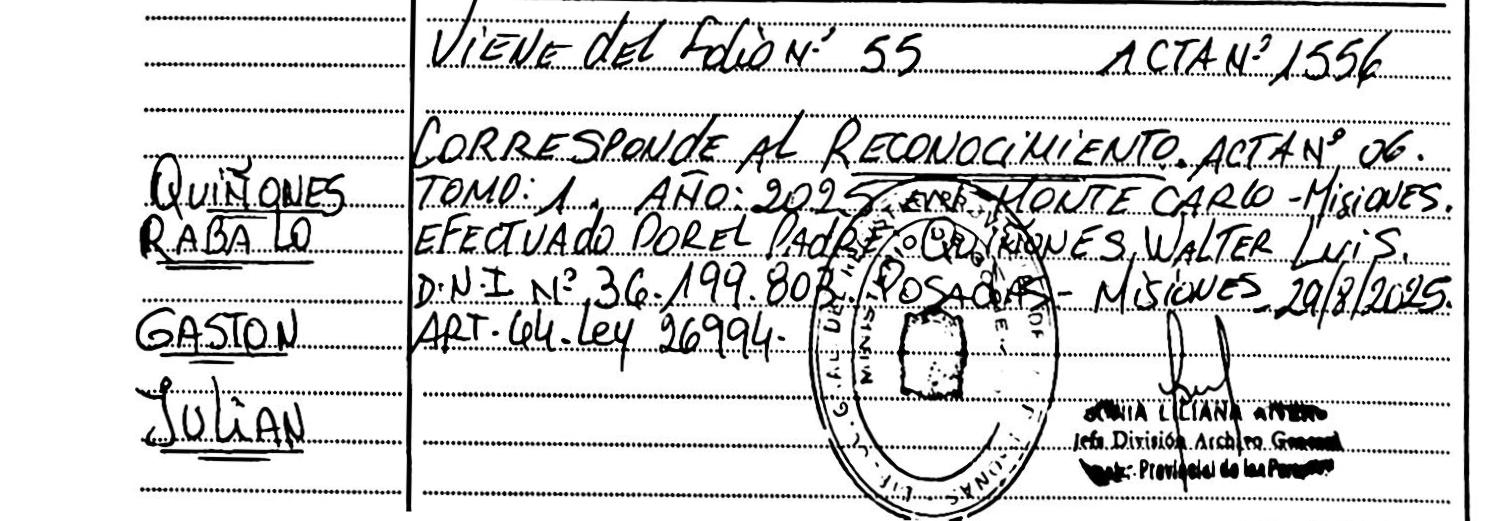 VIENE del Folio Nº 55 ACTA Nº 1556
CORRESPONDE AL RECONOCIMIENTO. ACTA Nº 06.
QUIÑONES
TOMO: 1. AÑO: 2025 MONTE CARLO - MISIONES.
RABALO
EFECTUADO POR EL PADRE QUIÑONES, WALTER LUIS.
D.N.I Nº 36.199.803. POSADAS - MISIONES 29/8/2025.
GASTON
ART. 44. Ley 26994.
JULIAN
LILIANA
Jefe División Archivo General
Provincial de las Personas
MINISTERIO DE GOB